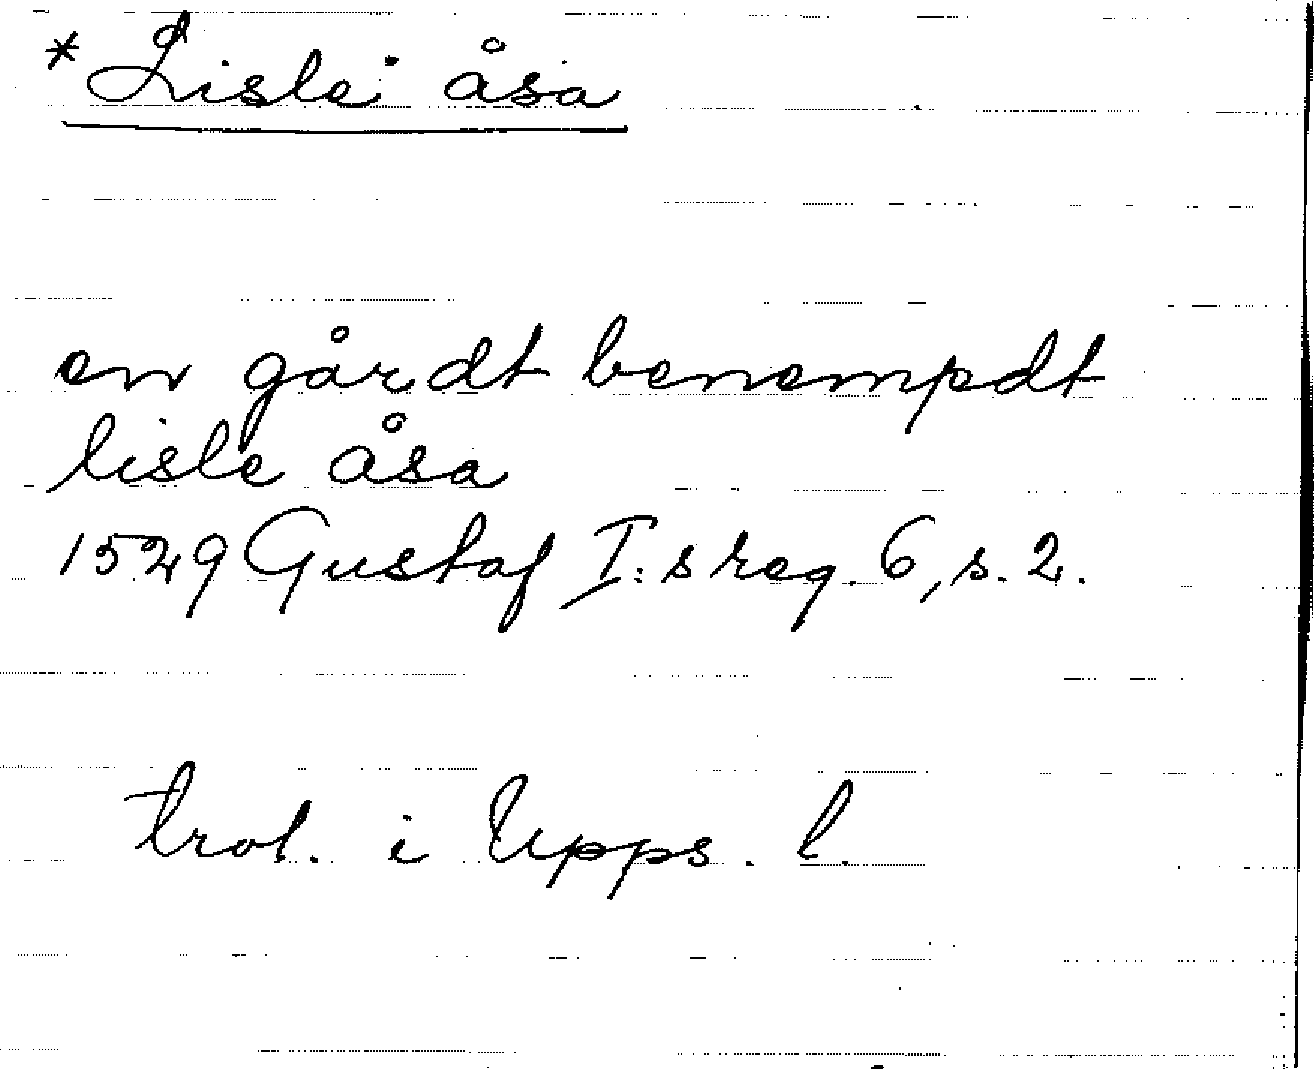 *Lisle åsa
en gårdt benempdt
lisle åsa
1529 Gustaf I:s reg. 6, s. 2.
trol. i Upps. l.